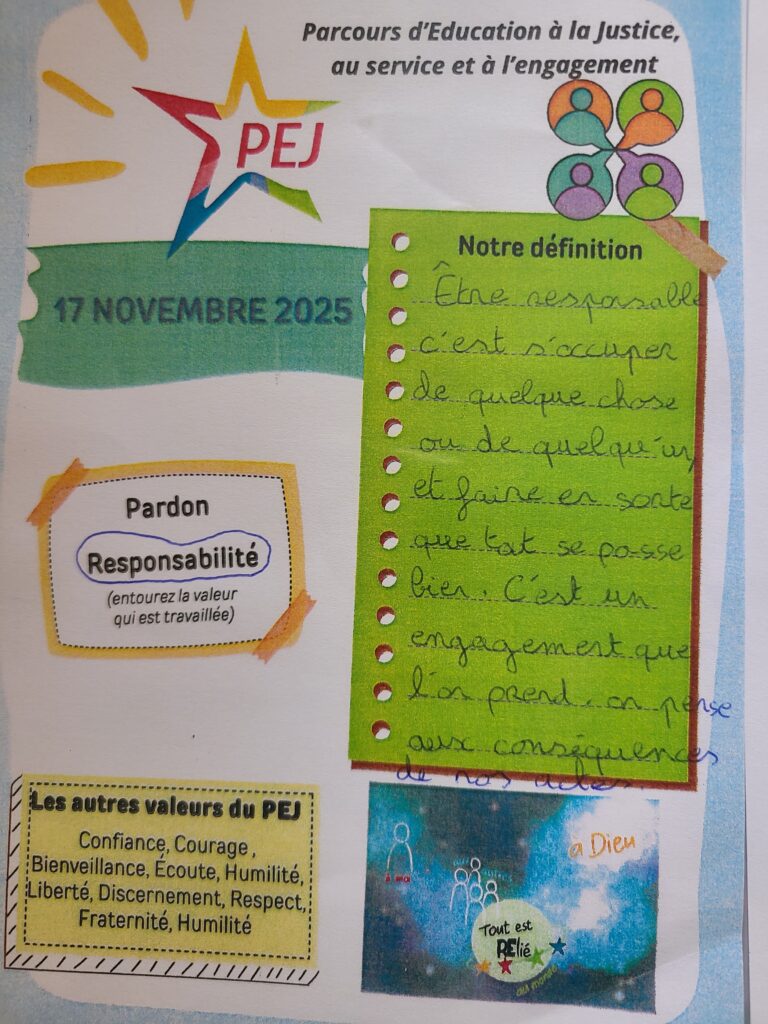 Parcours d'Education à la Justice,
au service et à l'engagement
PEJ
17 NOVEMBRE 2025
Notre définition
Être responsable
c'est s'occuper
de quelque chose
ou de quelqu'un
et faire en sorte
que tout se passe
bien. C'est un
engagement que
l'on prend, on pense
aux conséquences
de nos actes.
Pardon
Responsabilité
(entourez la valeur
qui est travaillée)
Les autres valeurs du PEJ
Confiance, Courage ,
Bienveillance, Écoute, Humilité,
Liberté, Discernement, Respect,
Fraternité, Humilité
à Dieu
à moi
Tout est
RElié
au monde